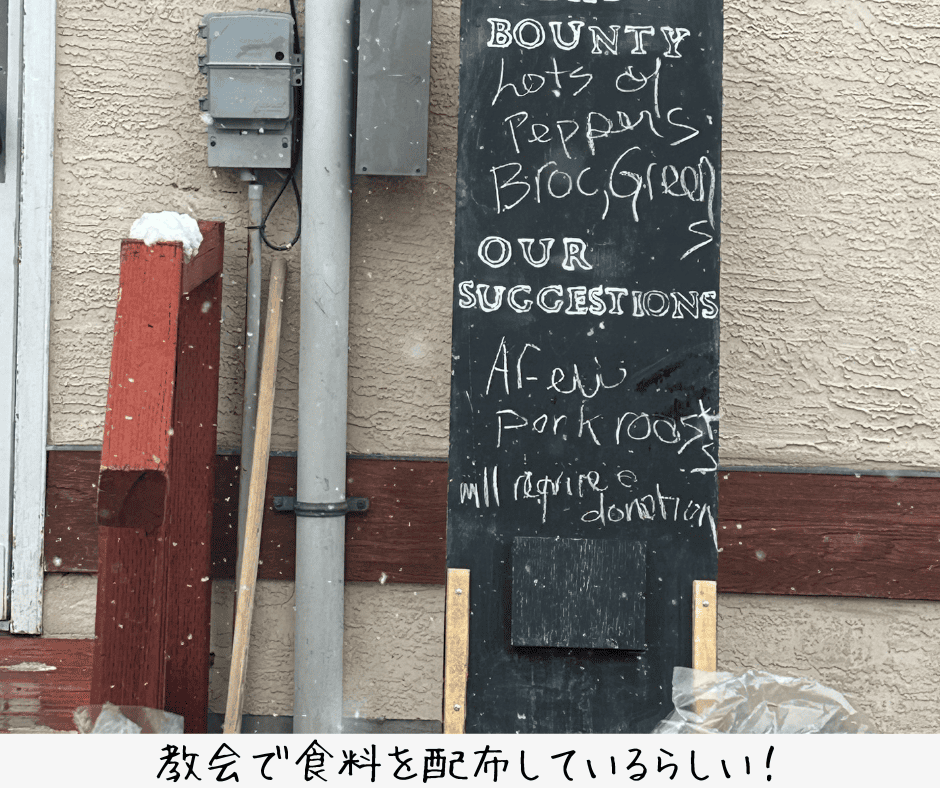 BOUNTY
Lots of
Peppers.
Broc, Green
s
OUR
SUGGESTIONS
A Few
pork roast
s
will require a
donation
教会で食料を配布しているらしい!